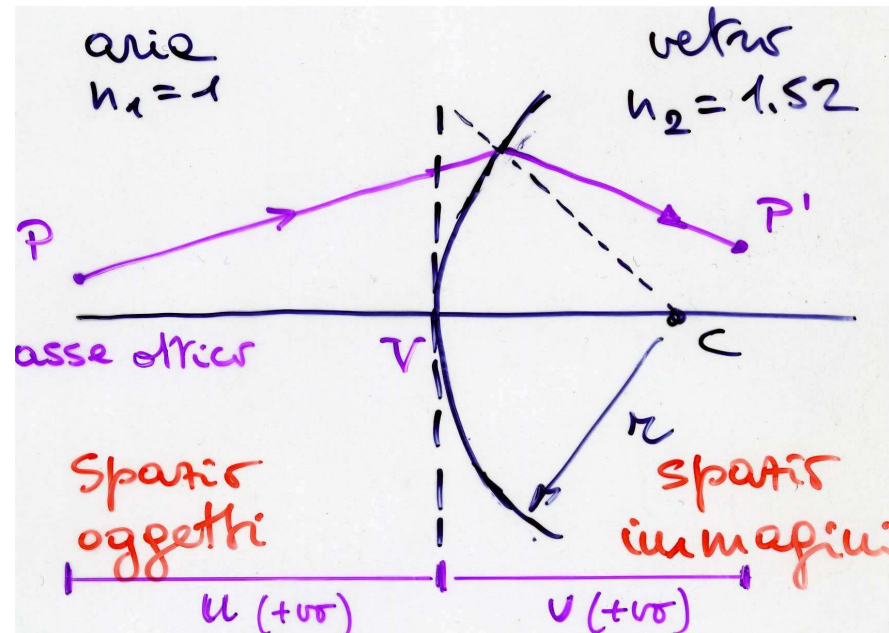 aria
n₁ = 1
vetro
n₂ = 1.52
P
P'
asse ottico
V
C
r
spazio
oggetti
spazio
immagini
u (+vo)
v (+vo)